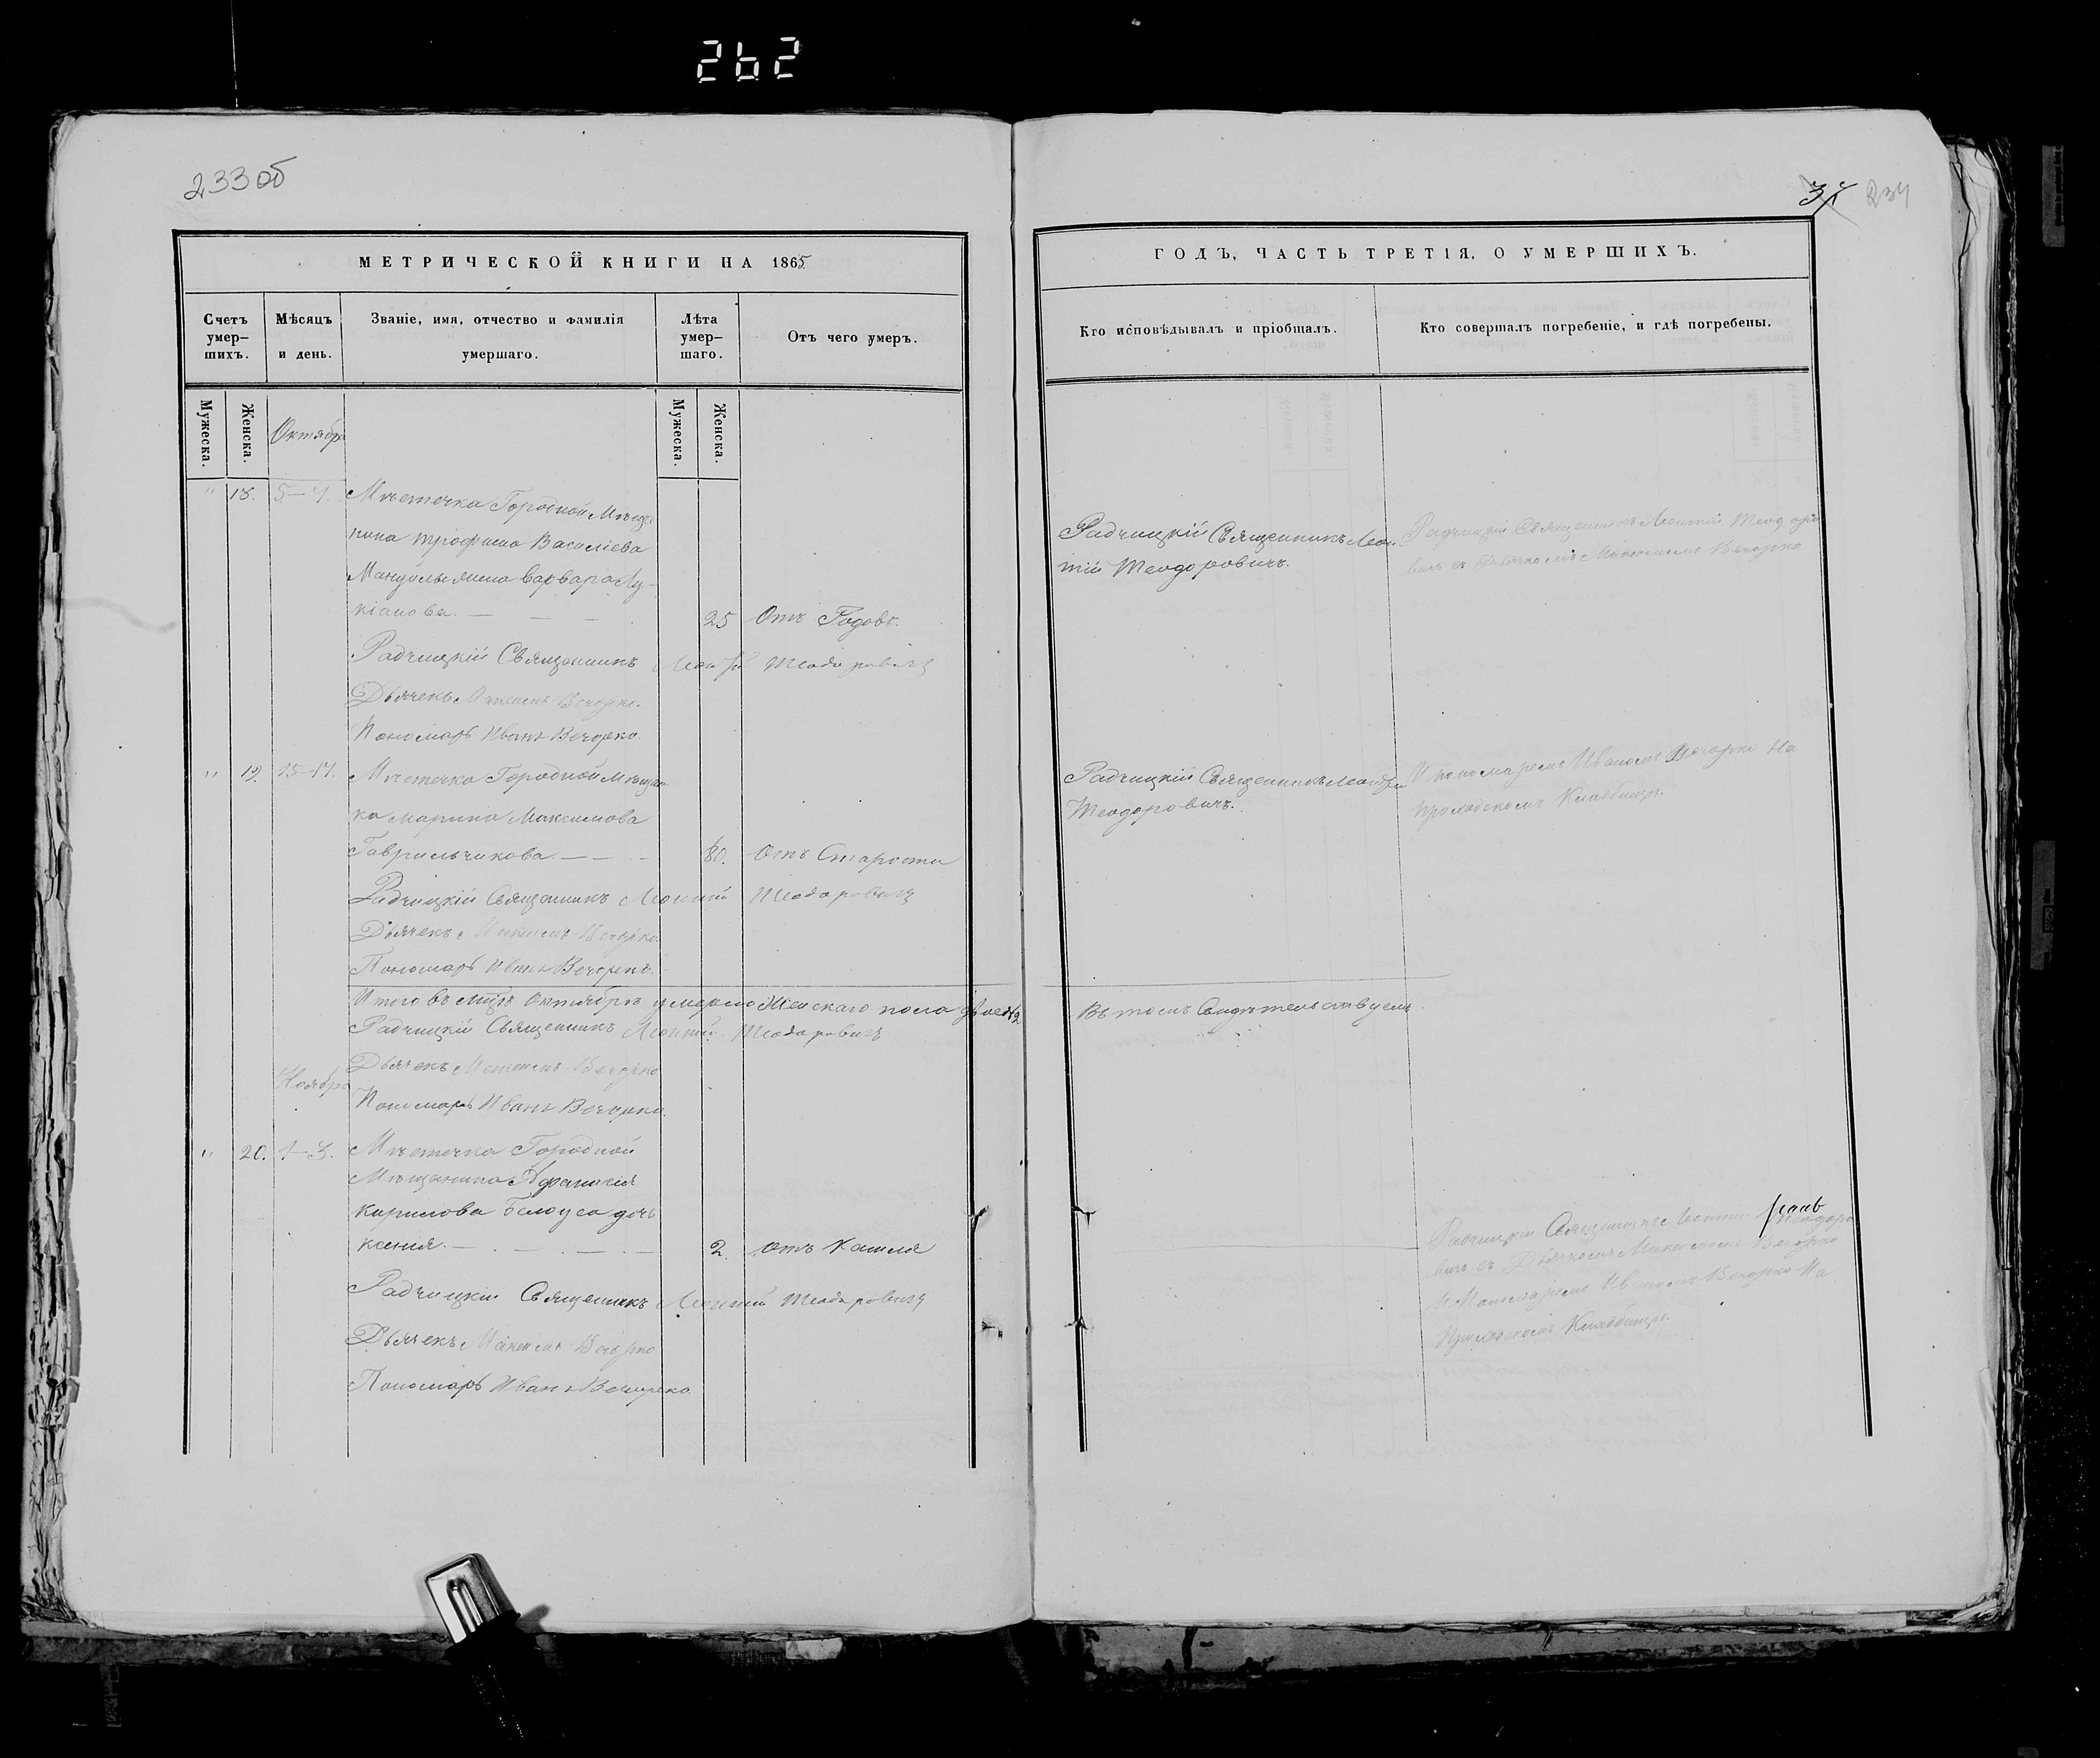 262
233 об
МЕТРИЧЕСКОЙ КНИГИ НА 1865
Счетъ умер-шихъ.
Мѣсяцъ и день.
Званіе, имя, отчество и фамилія умершаго.
Лѣта умер-шаго.
Отъ чего умеръ.
Мужеска.
Женска.
Октябрь
Мужеска.
Женска.
" 18. 5–7. Мѣстечка Городной Мѣща
нина Трофима Василіева
жена Варвара Лу-
кіанова. — — — 25 Отъ Родовъ.
Радчицкій Священникъ Леонтій Теодоровичъ
Дьячекъ Максимъ Вечорко.
Пономарь Иванъ Вечорко.
" 19. 15–17. Мѣстечка Городной Мѣщан
ка Марина Максимова
Гаврильчикова — — — 80. Отъ Старости
Радчицкій Священникъ Леонтій Теодоровичъ
Дьячекъ Максимъ Вечорко.
Пономарь Иванъ Вечорко.
Итого въ Октябрѣ умерло Женскаго пола двѣ 2
Радчицкій Священникъ Леонтій Теодоровичъ
Дьячекъ Максимъ Вечорко
Ноябрь
Пономарь Иванъ Вечорко.
" 20. 1–3. Мѣстечка Городной
Мѣщанина Афанасія
Кирилова Белоуса дочь
Ксенія. — — — 2. отъ Кашля
Радчицкій Священникъ Леонтій Теодоровичъ
Дьячекъ Максимъ Вечорко
Пономарь Иванъ Вечорко
234
ГОДЪ, ЧАСТЬ ТРЕТІЯ, О УМЕРШИХЪ.
Кто исповѣдывалъ и пріобщалъ.
Кто совершалъ погребеніе, и гдѣ погребены.
Радчицкій Священникъ Леон-
тій Теодоровичъ.
Радчицкій Священникъ Леонтій Теодоро
вичъ съ Дьячкомъ Максимомъ Вечорко
Радчицкій Священникъ Леонтій
Теодоровичъ.
И пономаремъ Иваномъ Вечорко На
приходскомъ Кладбищѣ.
Въ томъ Свидѣтельствуемъ
Радчицкій Священникъ Леонтій Теодоро
вичъ съ Дьячкомъ Максимомъ Вечорко
И Пономаремъ Иваномъ Вечорко На
Приходскомъ Кладбищѣ.